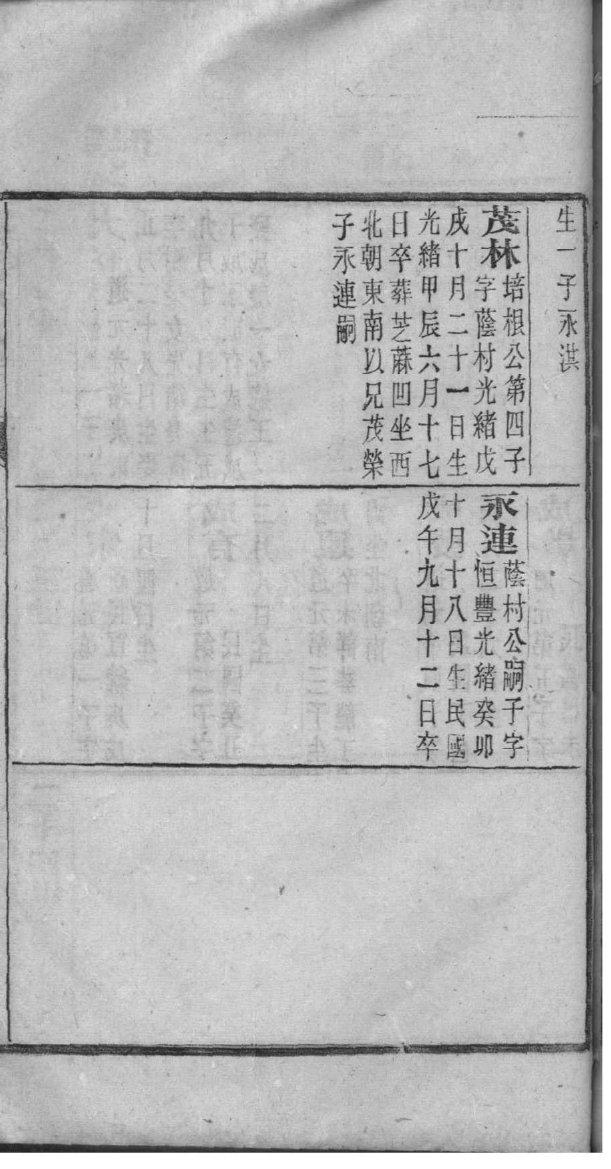 生一子永淇
茂林培根公第四子
字蔭村光緒戊
戌十月二十一日生
光緒甲辰六月十七
日卒葬芝蔴凹坐西
北朝東南以兄茂榮
子永連嗣
永連蔭村公嗣子字
恒豐光緒癸卯
十月十八日生民國
戊午九月十二日卒